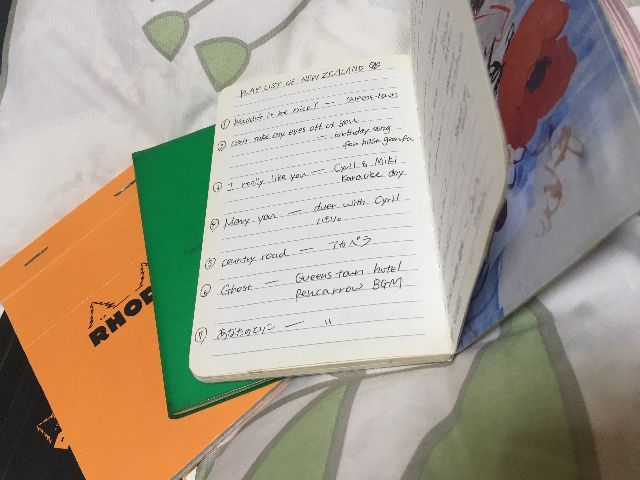 PLAY LIST OF NEW ZEALAND
① Wouldn't it be nice? — Queens town
② Can't take my eyes off of you
— birthday song
for base grandpa
④ I really like you — Cyril & Miki
Karaoke day
⑥ Marry you — duet with Cyril
⑤ country road — アカペラ
⑥ Ghost — Queens town hotel
Rencarrow BGM
⑧ あなたのとりこ — 〃
RHOD